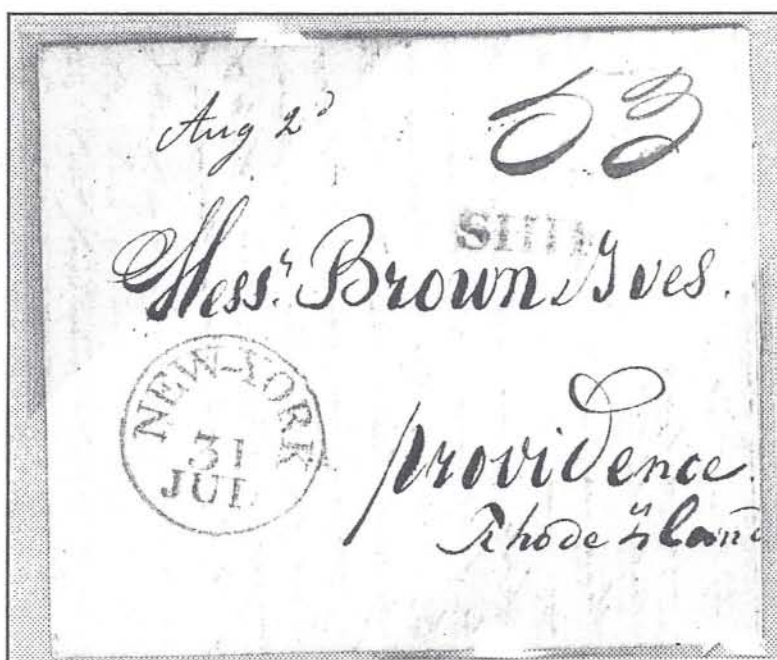 Aug 2d
53
SHIP
Messrs. Brown Ives.
NEW-YORK
31
JUL
providence.
Rhode Island